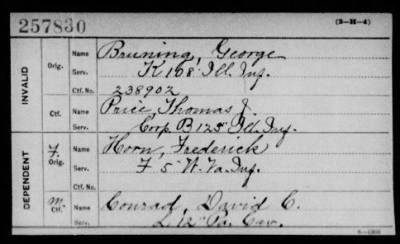 257830
(3-H-4)
INVALID
Orig.
Name Bruning, George
Serv. K 168 Ill. Inf.
Ctf. No. 238902
Ctf.
Name Price, Thomas J.
Serv. Corp. B 125 Ill. Inf.
DEPENDENT
F. Orig.
Name Horn, Frederick
Serv. F 5 W. Va. Inf.
Ctf. No.
M. Ctf.
Name Conrad, David C.
Serv. L 12" Pa. Cav.